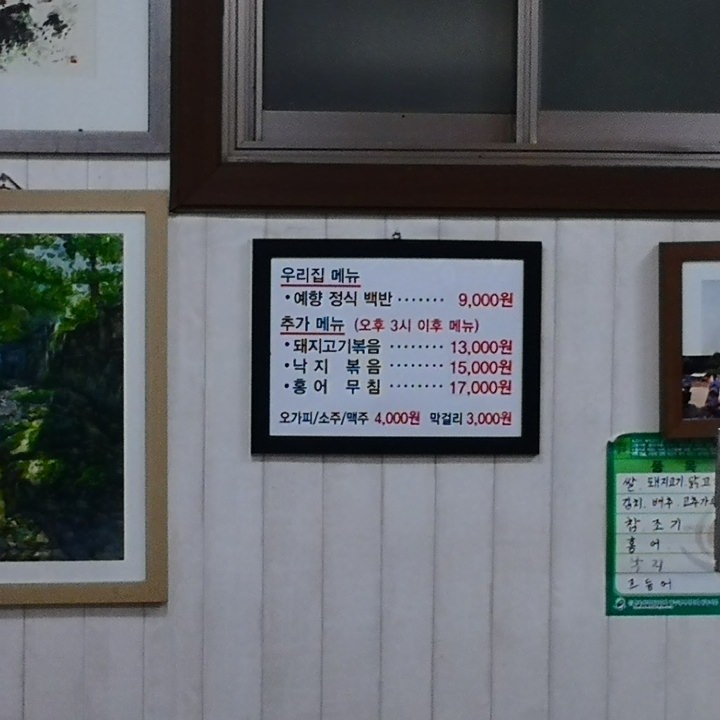 우리집 메뉴
•예향 정식 백반 ······· 9,000원
추가 메뉴 (오후 3시 이후 메뉴)
•돼지고기볶음 ········ 13,000원
•낙지 볶음 ········ 15,000원
•홍어 무침 ········ 17,000원
오가피/소주/맥주 4,000원 막걸리 3,000원
품목
쌀. 돼지고기. 닭고
김치. 배추. 고추가
참조기
홍어
낙지